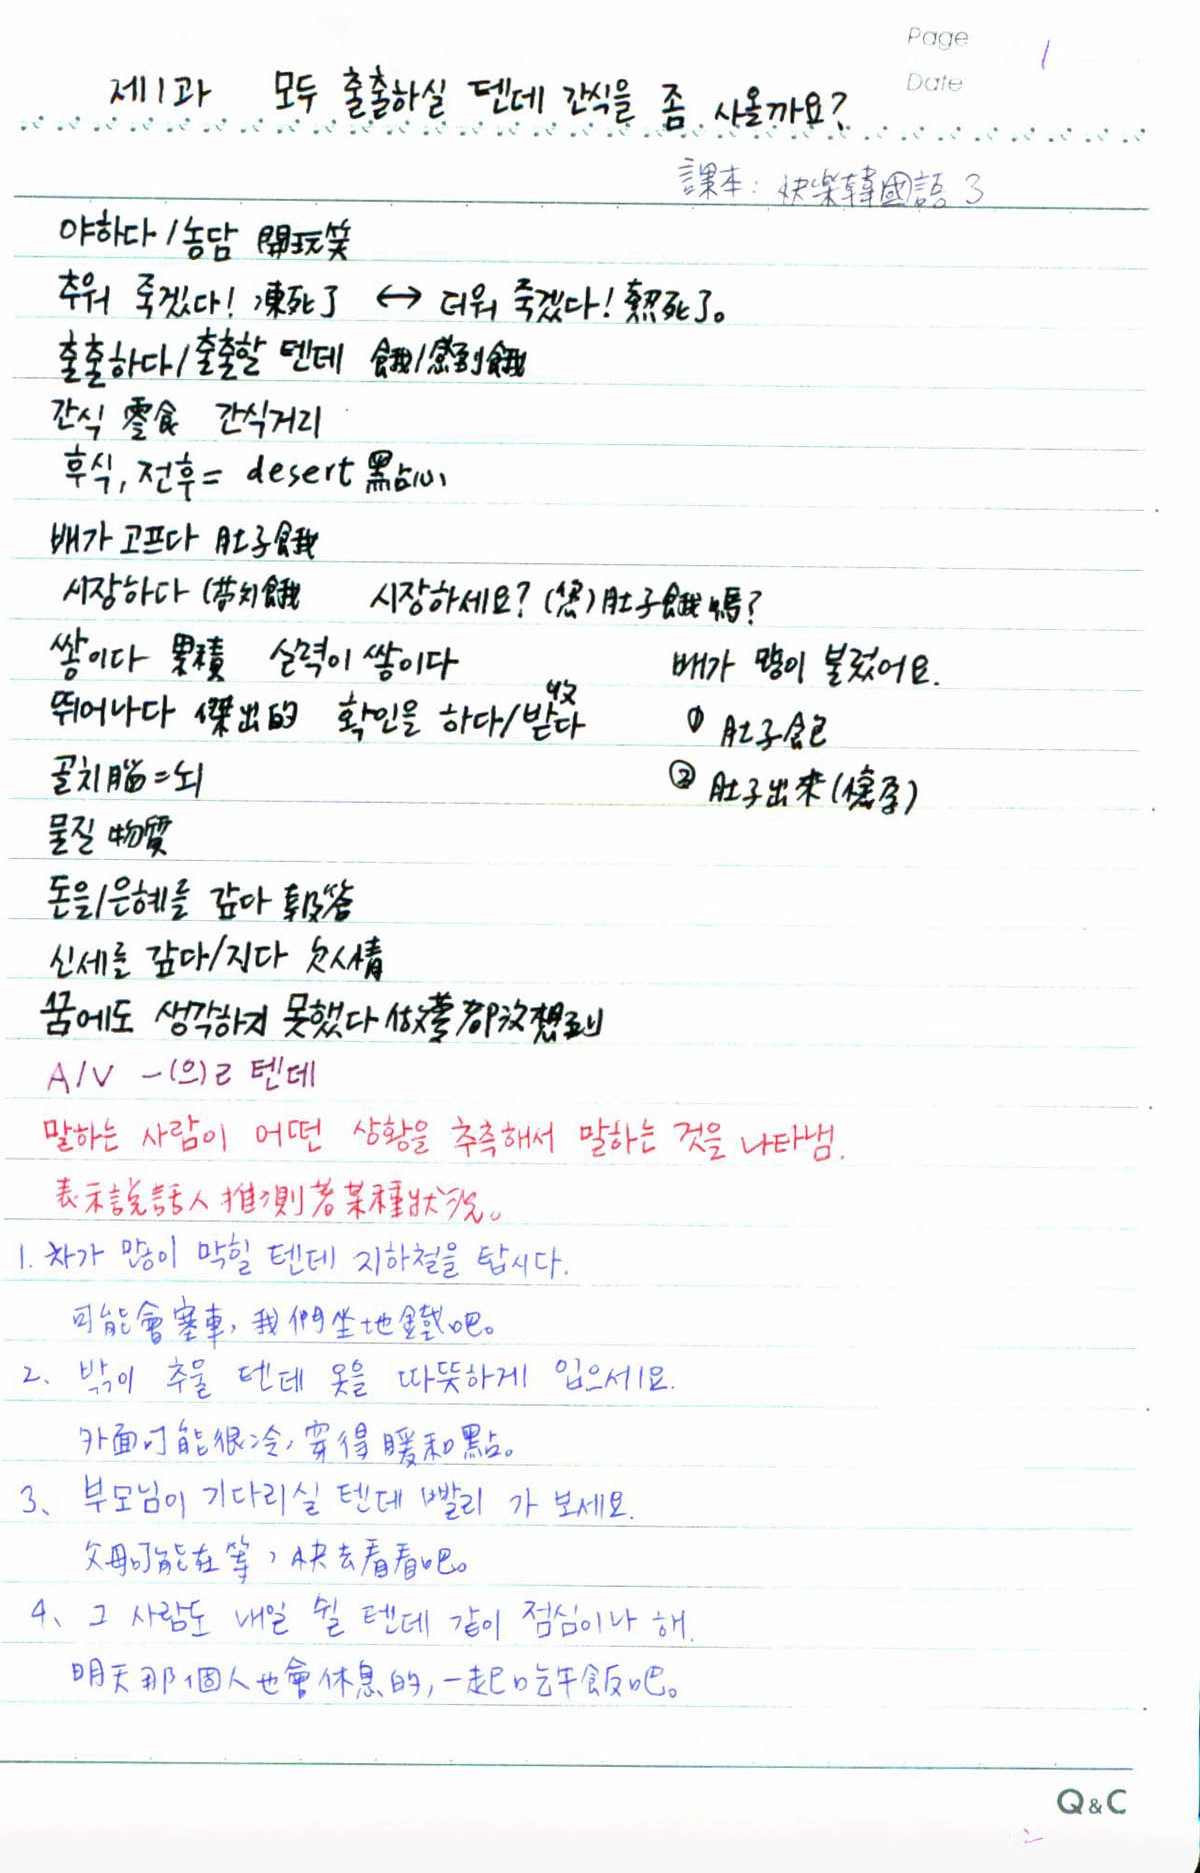 Page 1
Date
제1과 모두 출출하실 텐데 간식을 좀 사올까요?
課本: 快樂韓國語 3
야하다/농담 開玩笑
추워 죽겠다! 凍死了 ↔ 더워 죽겠다! 熱死了。
출출하다/출출할 텐데 餓/感到餓
간식 零食 간식거리
후식, 전후 = desert 點心
배가 고프다 肚子餓
시장하다 (苦勾餓 시장하세요? (您)肚子餓嗎?
쌓이다 累積 실력이 쌓이다 배가 많이 불렀어요.
뛰어나다 傑出的 확인을 하다/받다 收 ① 肚子飽
골치 腦 = 뇌 ② 肚子出來(懷孕)
물질 物質
돈을/은혜를 갚아 報答
신세를 갚다/지다 欠人情
꿈에도 생각하지 못했다 做夢都沒想到
A/V -(으)ㄹ 텐데
말하는 사람이 어떤 상황을 추측해서 말하는 것을 나타냄.
表示說話人推測著某種狀況。
1. 차가 많이 막힐 텐데 지하철을 탑시다.
可能會塞車, 我們坐地鐵吧。
2、밖이 추울 텐데 옷을 따뜻하게 입으세요.
外面可能很冷, 穿得暖和點。
3、부모님이 기다리실 텐데 빨리 가 보세요.
父母可能在等, 快去看看吧。
4、그 사람도 내일 쉴 텐데 같이 점심이나 해.
明天那個人也會休息的, 一起吃午飯吧。
Q&C